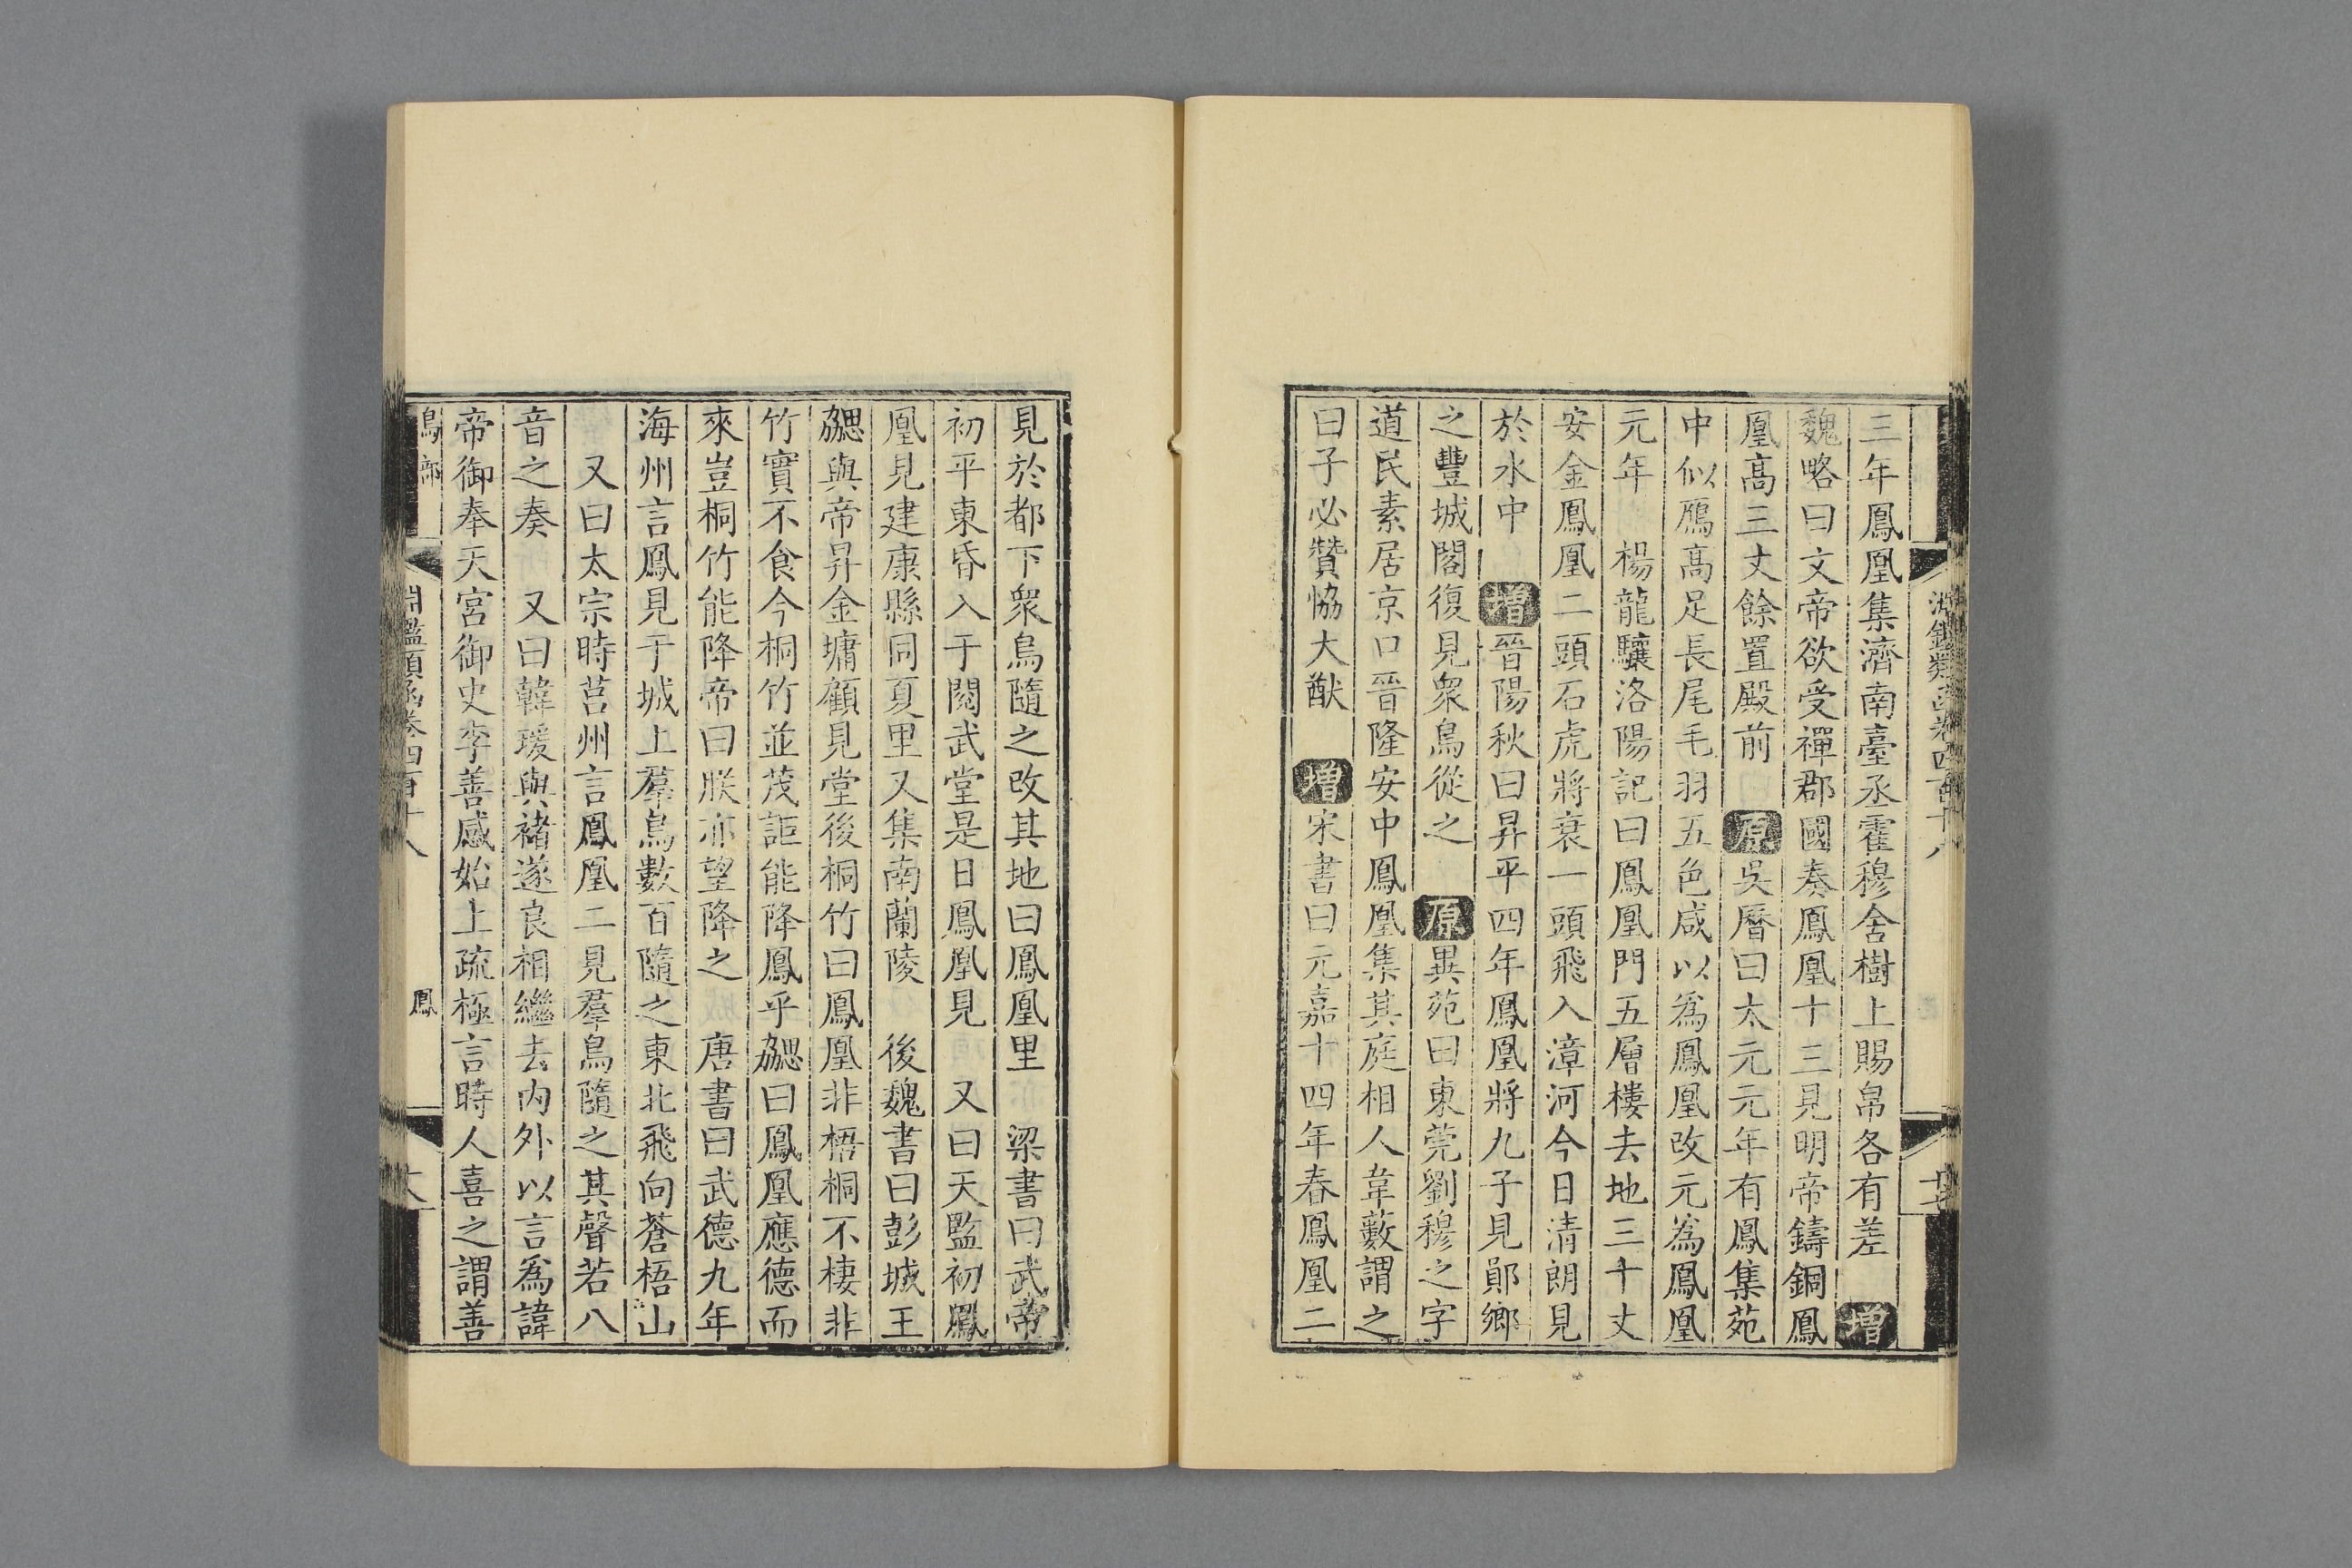 三年鳳凰集濟南臺丞霍穆舍樹上賜帛各有差 增
魏略曰文帝欲受禪郡國奏鳳凰十三見明帝鑄銅鳳
凰高三丈餘置殿前 原 吳曆曰太元元年有鳳集苑
中似鴈高足長尾毛羽五色咸以為鳳凰改元為鳳凰
元年 楊龍驤洛陽記曰鳳凰門五層樓去地三十丈
安金鳳凰二頭石虎將衰一頭飛入漳河今日清朗見
於水中 增 晉陽秋曰昇平四年鳳凰將九子見鄖鄉
之豐城閣復見衆鳥從之 原 異苑曰東莞劉穆之字
道民素居京口晉隆安中鳳凰集其庭相人韋藪謂之
曰子必贊恊大猷 增 宋書曰元嘉十四年春鳳凰二
見於都下衆鳥隨之改其地曰鳳凰里 梁書曰武帝
初平東昏入于閱武堂是日鳳凰見 又曰天監初鳳
凰見建康縣同夏里又集南蘭陵 後魏書曰彭城王
勰與帝昇金墉顧見堂後桐竹曰鳳凰非梧桐不棲非
竹實不食今桐竹並茂詎能降鳳乎勰曰鳳凰應德而
來豈桐竹能降帝曰朕亦望降之 唐書曰武德九年
海州言鳳見于城上羣鳥數百隨之東北飛向蒼梧山
又曰太宗時莒州言鳳凰二見羣鳥隨之其聲若八
音之奏 又曰韓瑗與褚遂良相繼去內外以言為諱
帝御奉天宮御史李善感始上疏極言時人喜之謂善
鳥部 淵鑑類函卷四百十八 鳳